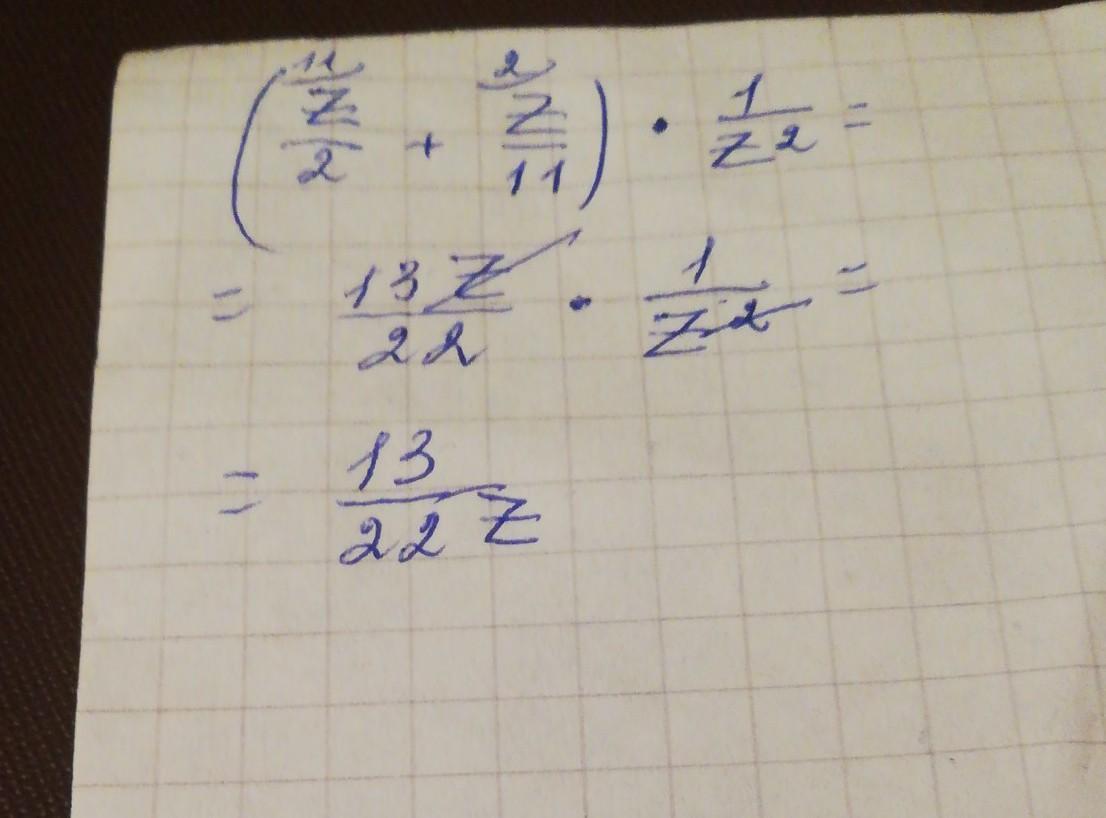 (11⁄ z/2 + 2⁄ z/11) · 1/z² =
= 13z/22 · 1/z² =
= 13/22z